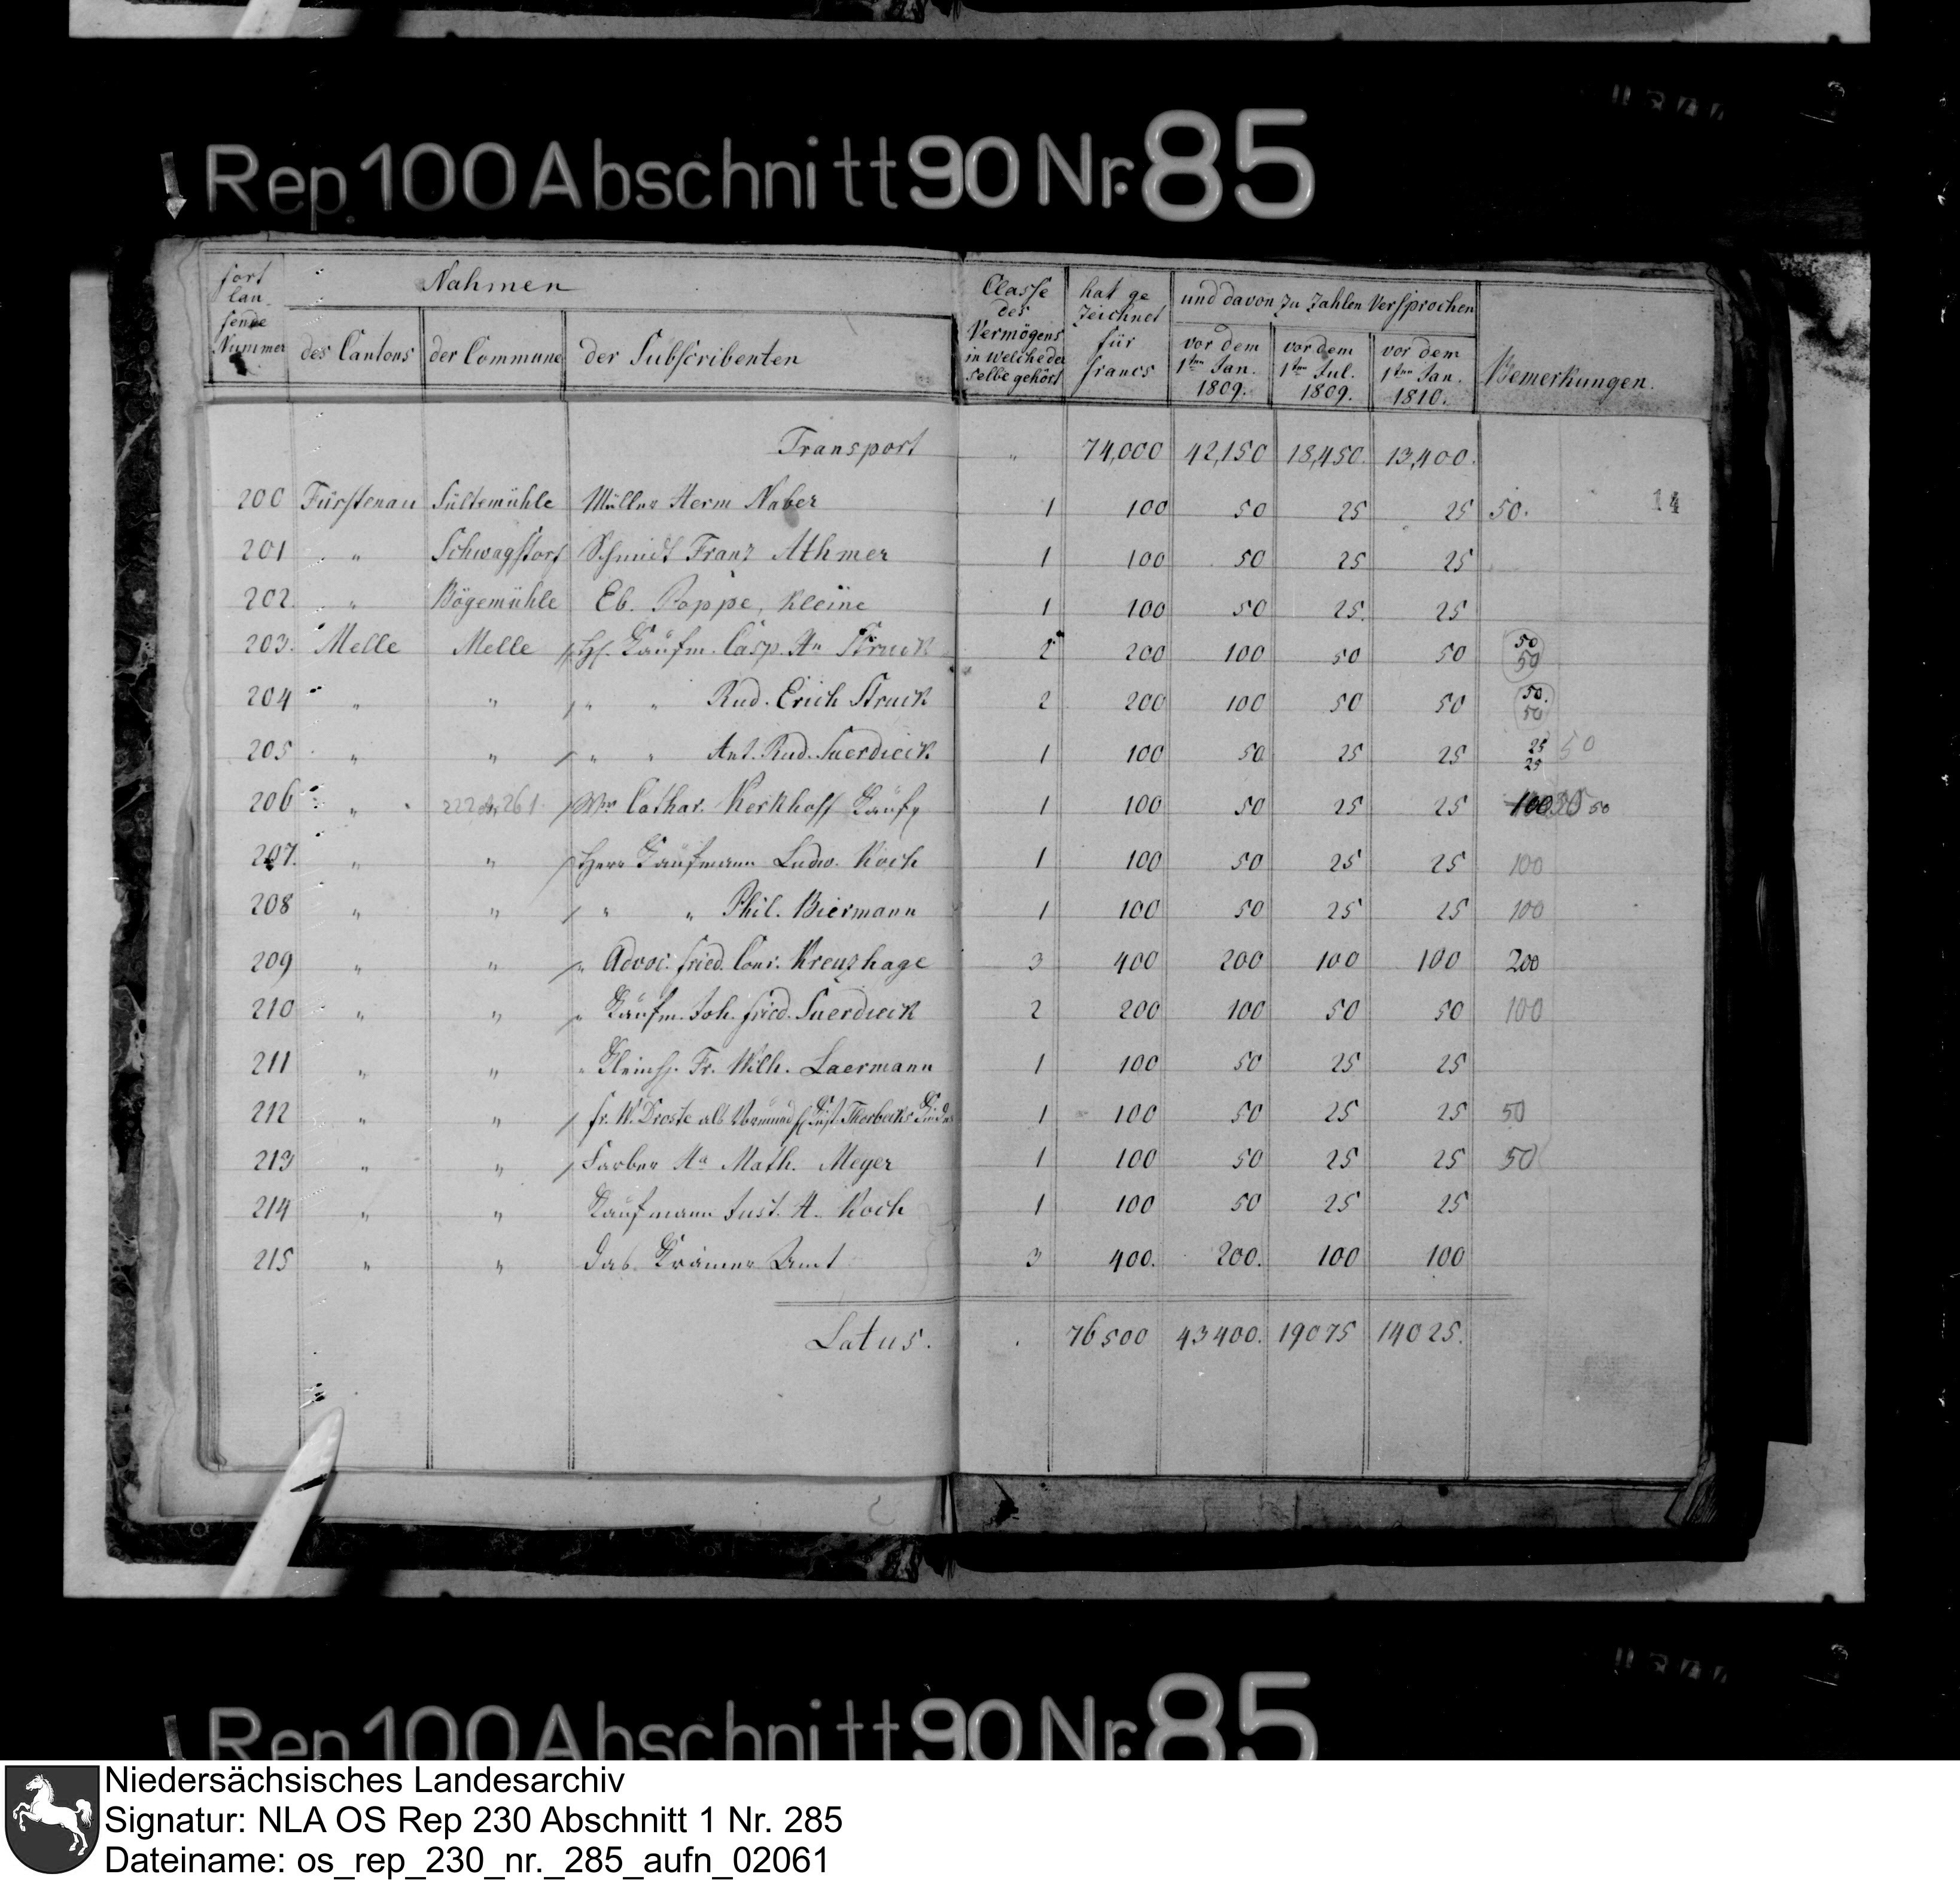 Rep. 100 Abschnitt 90 Nr. 85
fort lau- fende Nummer
Nahmen
des Cantons
der Commune
der Subscribenten
Classe des Vermögens in welche der selbe gehört
hat ge zeichnet für francs
und davon zu zahlen Versprochen
vor dem 1ten Jan. 1809.
vor dem 1ten Jul. 1809.
vor dem 1ten Jan. 1810.
Bemerkungen.
Transport " 74,000 42,150 18,450. 13,400.
14
200 Fürstenau Sültemühle Müller Herm Naber 1 100 50 25 25 50.
201 " Schwagstorf Schmidt Franz Athmer 1 100 50 25 25
202. " Bögemühle Eb. Poppe, Kleine 1 100 50 25. 25
203. Melle Melle H. Kaufm. Casp. Hn Struck 2 200 100 50 50 50 50
204 " " " " Rud. Erich Struck 2 200 100 50 50 50. 50
205 " " " " Ant. Rud. Suerdieck 1 100 50 25 25 25 25 50
206 " 222 261. Wwe Cathar. Kerkhoff 1 100 50 25 25 100 50 50
207. " " Herr Kaufmann Ludw. Koch 1 100 50 25 25 100
208 " " " " Phil. Biermann 1 100 50 25 25 100
209 " " " Advoc. fried. Conr. Kreuzhage 3 400 200 100 100 200
210 " " " Kaufm. Joh. fried. Suerdieck 2 200 100 50 50 100
211 " " " Fr. Wilh. Laermann 1 100 50 25 25
212 " " fr. W. Droste als Vormund Thorbecks Kinder 1 100 50 25 25 50
213 " " Farber Hn Math. Meyer 1 100 50 25 25 50
214 " " Kaufmann Just. H. Koch 1 100 50 25 25
215 " " das Krämer Amt 3 400. 200. 100 100
Latus. 76500 43400. 19075 14025.
Rep 100 Abschnitt 90 Nr. 85
Niedersächsisches Landesarchiv
Signatur: NLA OS Rep 230 Abschnitt 1 Nr. 285
Dateiname: os_rep_230_nr._285_aufn_02061